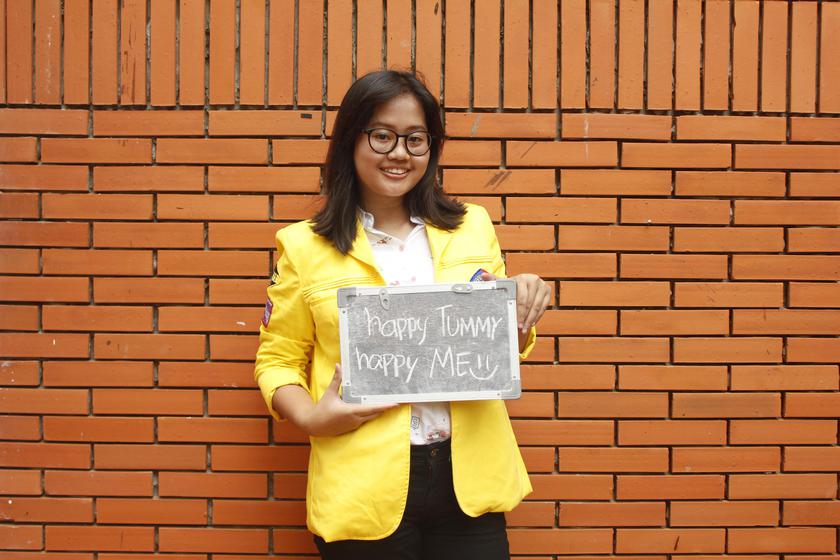 happy TUMMY
happy ME!!